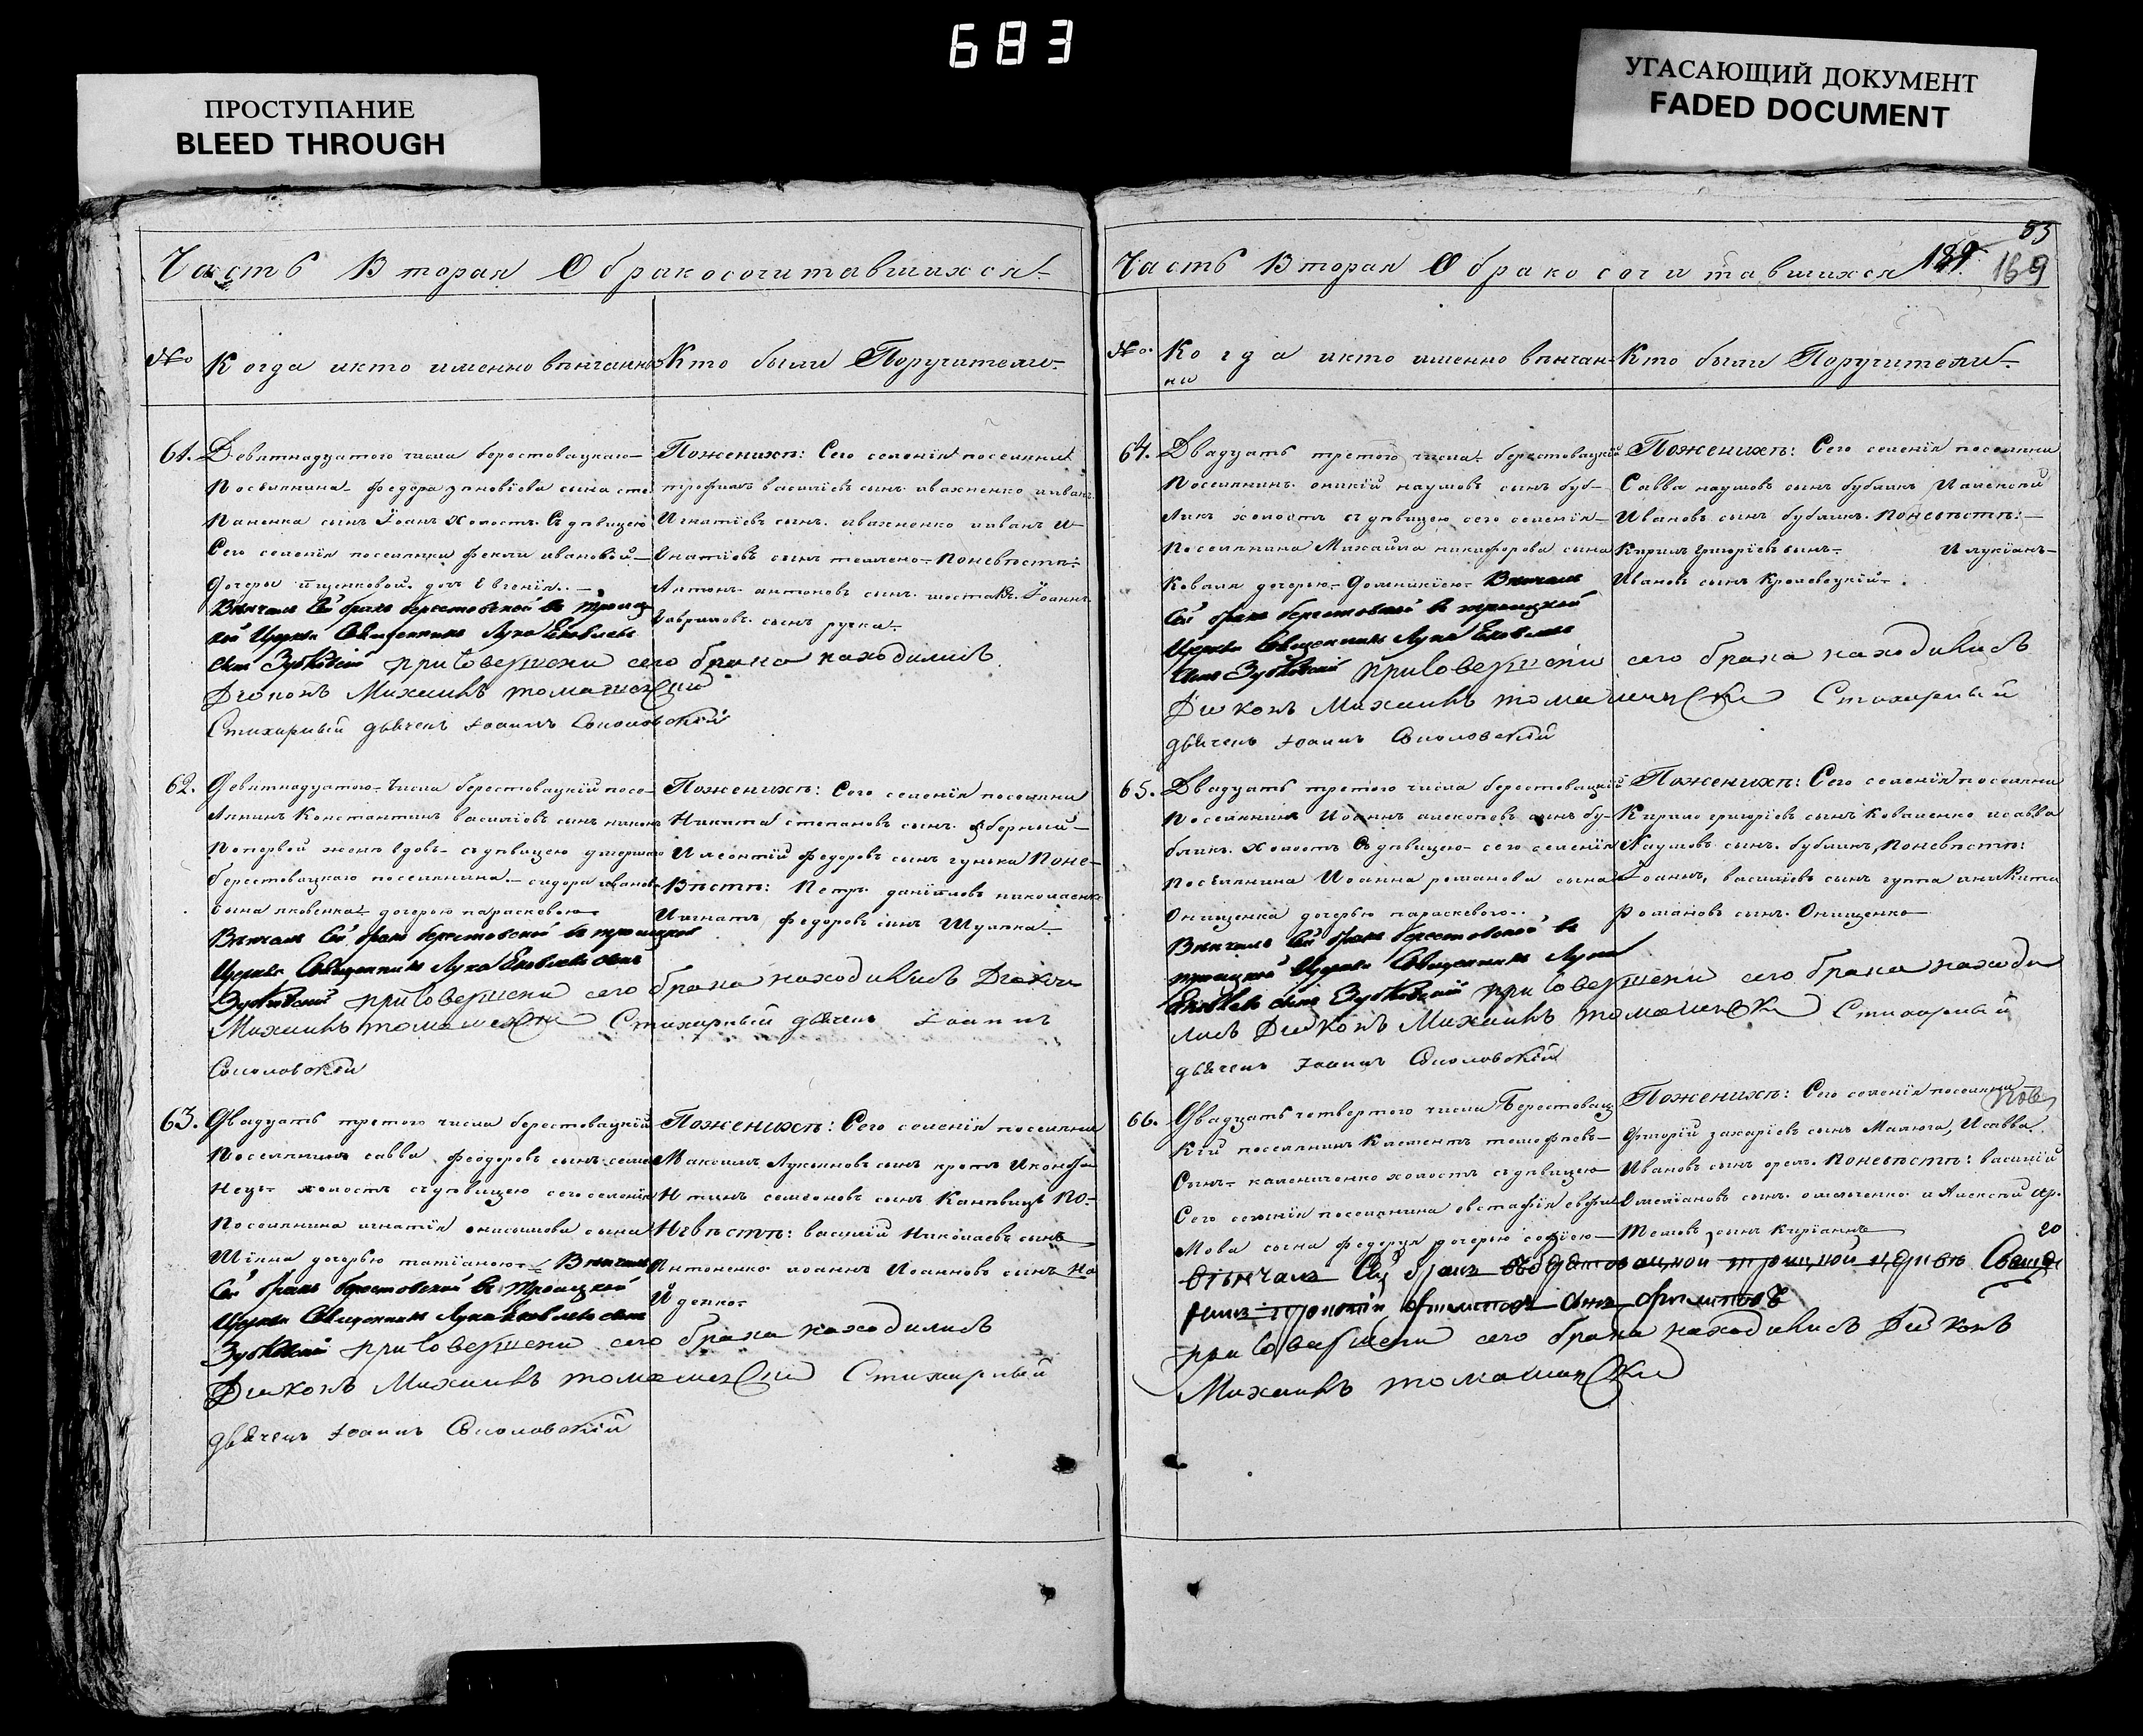 683
ПРОСТУПАНИЕ
BLEED THROUGH
УГАСАЮЩИЙ ДОКУМЕНТ
FADED DOCUMENT
Часть Вторая О бракосочитавшихся
№ Когда икто именно вѣнчанно
Кто были Поручители
61. Девятнадцатого числа берестовацкаго
Посѣлянина федора зиновіева сына сте
паненка сынъ Іоанъ холостъ. Съ дѣвицею
Сего селенія поселянки феклы ивановой
дочеры дочь Евгенія.
Вѣнчалъ Сей бракъ берестовской въ троиц
кой Церкви Священникъ Лука Яковлевъ
сынъ Зубковскій при совершени сего брака находились
Діяконъ Михаилъ томашевски
Стихарный дьячекъ Іоаннъ Соколовскій
Поженихѣ: Сего селенія поселяни
трофимъ василіевъ сынъ ивахненко ииванъ
Игнатіевъ сынъ. ивахненко ииванъ И
гнатіевъ сынъ Поневѣстѣ:
Антонъ антоновъ сынъ шостакъ. Іоаннъ
Гавриловъ сынъ
62. Девятнадцатого числа берестовацкій посе
лянинъ Константинъ василіевъ сынъ
Попервой женѣ вдовъ съ дѣвицею умершаго
берестовацкаго поселянина сидора иванов
сына яковенка дочерью параскевою
Вѣнчалъ Сей бракъ берестовской въ троицкой
Церкви Священникъ Лука Яковлевъ сынъ
Зубковский при совершени сего брака находились Діякон
Михаилъ томашевски Стихарный дьячекъ Іоаннъ
Соколовскій
Поженихѣ: Сего селенія поселяни
Никита степановъ сынъ
Илеонтій федоровъ сынъ гунька Поне
вѣстѣ: Петръ даніиловъ николаенко
Игнатъ федоровъ сынъ Шулика
63. Двадцать третого числа берестовацкій
Поселянинъ савва феодоровъ сынъ
нецъ холостъ съ дѣвицею сего селенія
Поселянина игнатія онисимова сына
Шіяна дочерью татіаною Вѣнчалъ
Сей бракъ берестовской въ Троицкой
Церкви Священникъ Лука Яковлевъ сынъ
Зубковский при совершени сего брака находились
Діяконъ Михаилъ томашевски Стихарный
дьячекъ Іоаннъ Соколовскій
Поженихѣ: Сего селенія поселяни
Максимъ Лукьяновъ сынъ кротъ Иконста
нтинъ семеоновъ сынъ Канѣвецъ По
невѣстѣ: василій Николаевъ сынъ
Антоненко иоаннъ Иоанновъ сынъ На
йденко
Часть Вторая О бракосочитавшихся 189.
55
169
№ Когда икто именно вѣнчан
ни
Кто были Поручители
64. Двадцать третого числа берестовацкій
Поселянинъ оникій наумовъ сынъ буб
ликъ холостъ съ дѣвицею сего селенія
Поселянина Михаила никифорова сына
Коваля дочерью Домникіею Вѣнчалъ
Сей бракъ берестовской въ троицкой
Церкви Священникъ Лука Яковлевъ
сынъ Зубковский при совершени сего брака находились
Діяконъ Михаилъ томашевски Стихарный
дьячекъ Іоаннъ Соколовскій
Поженихѣ: Сего селенія поселяни
Савва наумовъ сынъ бубликъ Иалексѣй
Ивановъ сынъ бубликъ. Поневѣстѣ:
Кирилъ григоріевъ сынъ Илукіанъ
Ивановъ сынъ Кролевецкій
65. Двадцать третого числа берестовацкій
Поселянинъ Иоаннъ алексѣевъ сынъ бу
бликъ. холостъ Съ дѣвицею сего селенія
Посѣлянина Иоанна романова сына
Онищенка дочерью параскевою
Вѣнчалъ Сей бракъ берестовской въ
троицкой Церкви Священникъ Лука
Яковлевъ сынъ Зубковский при совершени сего брака находи
лись Діяконъ Михаилъ томашевски Стихарный
дьячекъ Іоаннъ Соколовскій
Поженихѣ: Сего селенія поселяни
Кирило григоріевъ сынъ Коваленко исавва
Наумовъ сынъ бубликъ, Поневѣстѣ:
Іоаннъ, василіевъ сынъ гуппа иникита
романовъ сынъ. Онищенко
66. Двадцать четвертого числа Берестовац
кій поселянинъ Климентъ тимофѣевъ
Сынъ калениченко холостъ съ дѣвицею
Сего селенія поселянина евстафія
мова сына федоруя дочерью софіею
Вѣнчалъ Сей бракъ троицкой церкви Свяще
при совершени сего брака находились Діяконъ
Михаилъ томашевски
Поженихѣ: Сего селенія поселяни
Григорій захаріевъ сынъ Малюга, Исавва
Ивановъ сынъ орелъ. Поневѣстѣ: василій
Омеліановъ сынъ омельченко и Алексѣй
сынъ